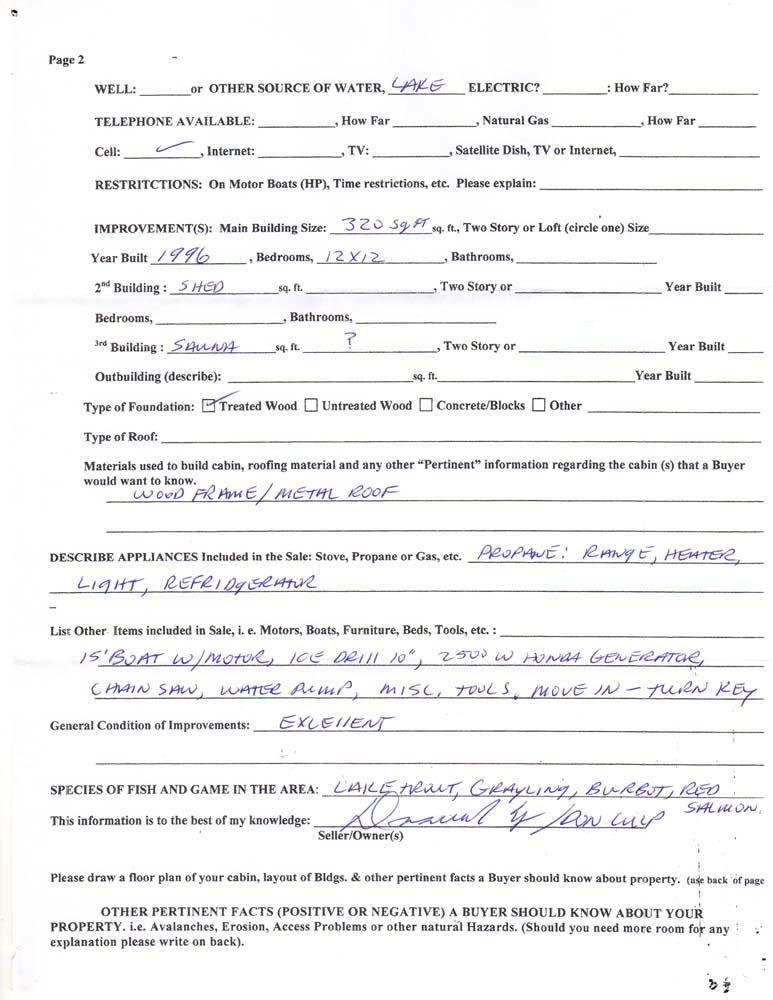 Page 2
WELL: ________or OTHER SOURCE OF WATER, LAKE ELECTRIC? __________: How Far?______________
TELEPHONE AVAILABLE: ____________, How Far _____________, Natural Gas ______________, How Far _________
Cell: ✓, Internet: _____________, TV: ____________, Satellite Dish, TV or Internet, ______________________
RESTRITCTIONS: On Motor Boats (HP), Time restrictions, etc. Please explain: ______________________________
IMPROVEMENT(S): Main Building Size: 320 Sq FT sq. ft., Two Story or Loft (circle one) Size__________________
Year Built 1996, Bedrooms, 12X12, Bathrooms, ______________________
2nd Building : SHED sq. ft. ____________________, Two Story or ______________________ Year Built ______
Bedrooms, ____________________, Bathrooms, ______________________
3rd Building : SAUNA sq. ft. ?, Two Story or ______________________ Year Built ______
Outbuilding (describe): _____________________________sq. ft.______________________________Year Built ___________
Type of Foundation: ☑ Treated Wood ☐ Untreated Wood ☐ Concrete/Blocks ☐ Other ___________________________
Type of Roof: ______________________________
Materials used to build cabin, roofing material and any other “Pertinent” information regarding the cabin (s) that a Buyer
would want to know.
WOOD FRAME/METAL ROOF
DESCRIBE APPLIANCES Included in the Sale: Stove, Propane or Gas, etc. PROPANE: RANGE, HEATER,
LIGHT, REFRIDgERATOR
List Other Items included in Sale, i. e. Motors, Boats, Furniture, Beds, Tools, etc. : ______________________________
15' BOAT W/MOTOR, ICE DRILL 10", 2500 W HONDA GENERATOR,
CHAIN SAW, WATER PUMP, MISC. TOOLS. MOVE IN – TURN KEY
General Condition of Improvements: EXCEllENT
SPECIES OF FISH AND GAME IN THE AREA: LAKE TROUT, GRAYLING, BURBOT, RED
SALMON.
This information is to the best of my knowledge: / DON CULP
Seller/Owner(s)
Please draw a floor plan of your cabin, layout of Bldgs. & other pertinent facts a Buyer should know about property. (use back of page
OTHER PERTINENT FACTS (POSITIVE OR NEGATIVE) A BUYER SHOULD KNOW ABOUT YOUR
PROPERTY. i.e. Avalanches, Erosion, Access Problems or other natural Hazards. (Should you need more room for any
explanation please write on back).